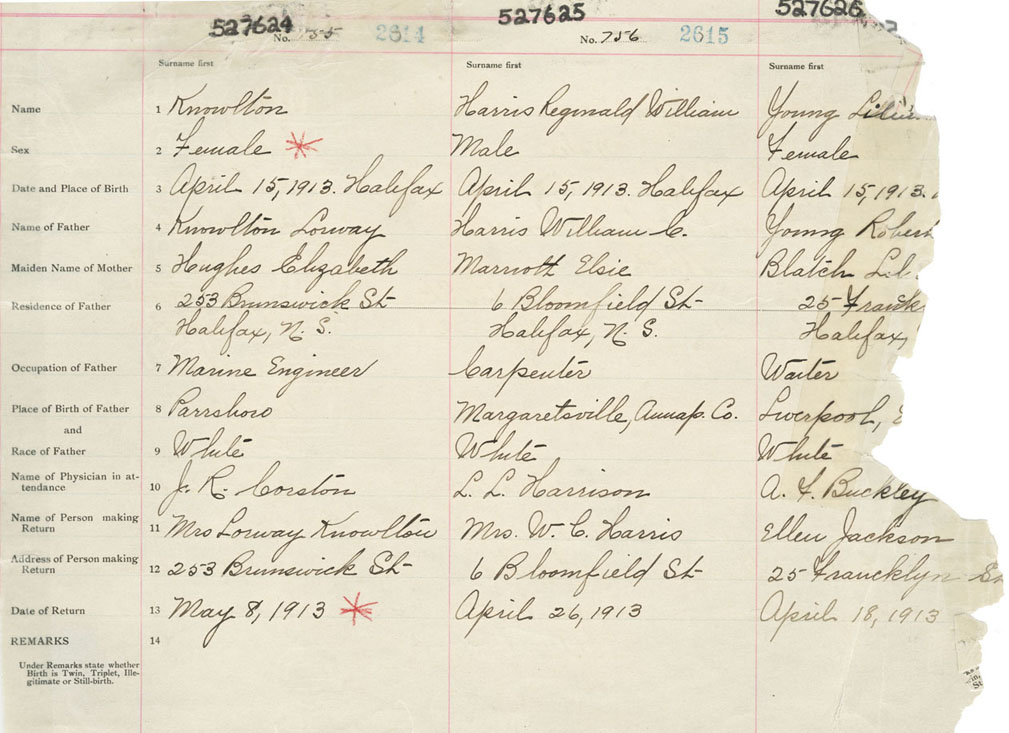 527624 527625 527626
No. 755 2614 No. 756 2615
Surname first Surname first Surname first
Name 1 Knowlton Harris Reginald William Young
Sex 2 Female Male Female
Date and Place of Birth 3 April 15, 1913. Halifax April 15, 1913. Halifax April 15, 1913.
Name of Father 4 Knowlton Lorway Harris William C. Young Robert
Maiden Name of Mother 5 Hughes Elizabeth Marriott Elsie Blatch
Residence of Father 6 253 Brunswick St 6 Bloomfield St 25
Halifax, N. S. Halifax, N. S. Halifax,
Occupation of Father 7 Marine Engineer Carpenter Waiter
Place of Birth of Father 8 Parrsboro Margaretsville, Annap. Co. Liverpool,
and
Race of Father 9 White White White
Name of Physician in at-
tendance 10 J. R. Corston L. L. Harrison A. F. Buckley
Name of Person making
Return 11 Mrs Lorway Knowlton Mrs. W. C. Harris Ellen Jackson
Address of Person making
Return 12 253 Brunswick St 6 Bloomfield St 25 Francklyn St
Date of Return 13 May 8, 1913 April 26, 1913 April 18, 1913
REMARKS 14
Under Remarks state whether
Birth is Twin, Triplet, Ille-
gitimate or Still-birth.